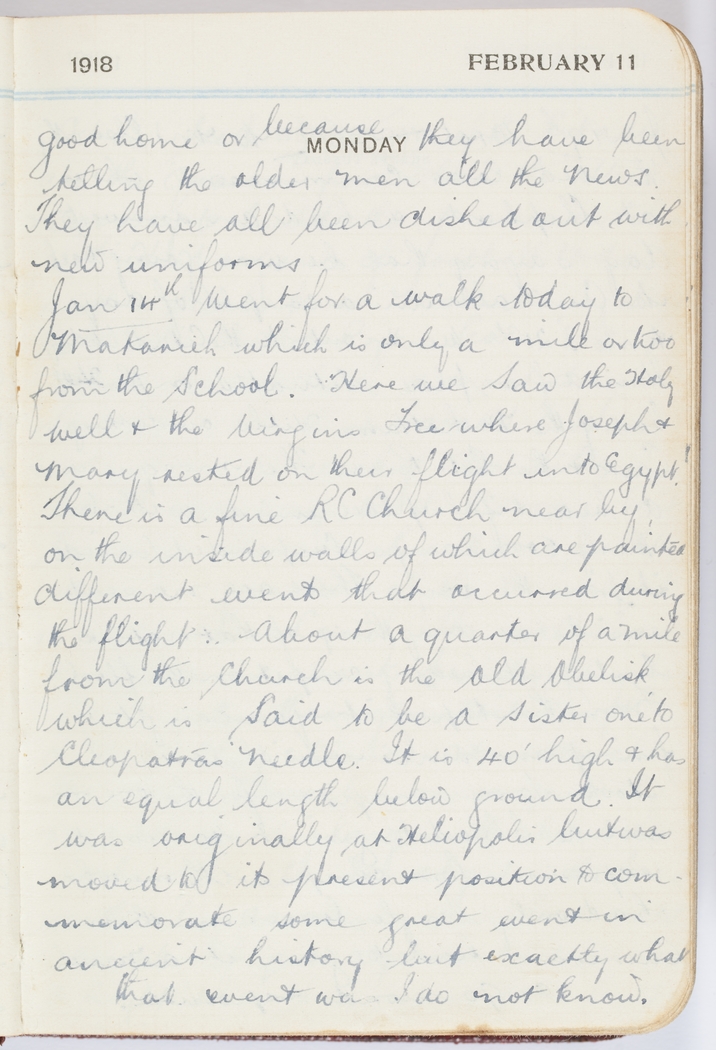 1918 FEBRUARY 11
MONDAY
good home or because they have been
telling the older men all the News.
They have all been dished out with
new uniforms.
Jan 14th Went for a walk today to
Matarieh which is only a mile or two
from the School. Here we saw the Holy
well & the Virgins Tree where Joseph &
Mary rested on their flight into Egypt.
There is a fine RC Church near by,
on the inside walls of which are painted
different events that occurred during
the flight. About a quarter of a mile
from the Church is the old Obelisk
which is said to be a sister one to
Cleopatras Needle. It is 40' high & has
an equal length below ground. It
was originally at Heliopolis but was
moved to its present position to com-
memorate some great event in
ancient history but exactly what
that event was I do not know.